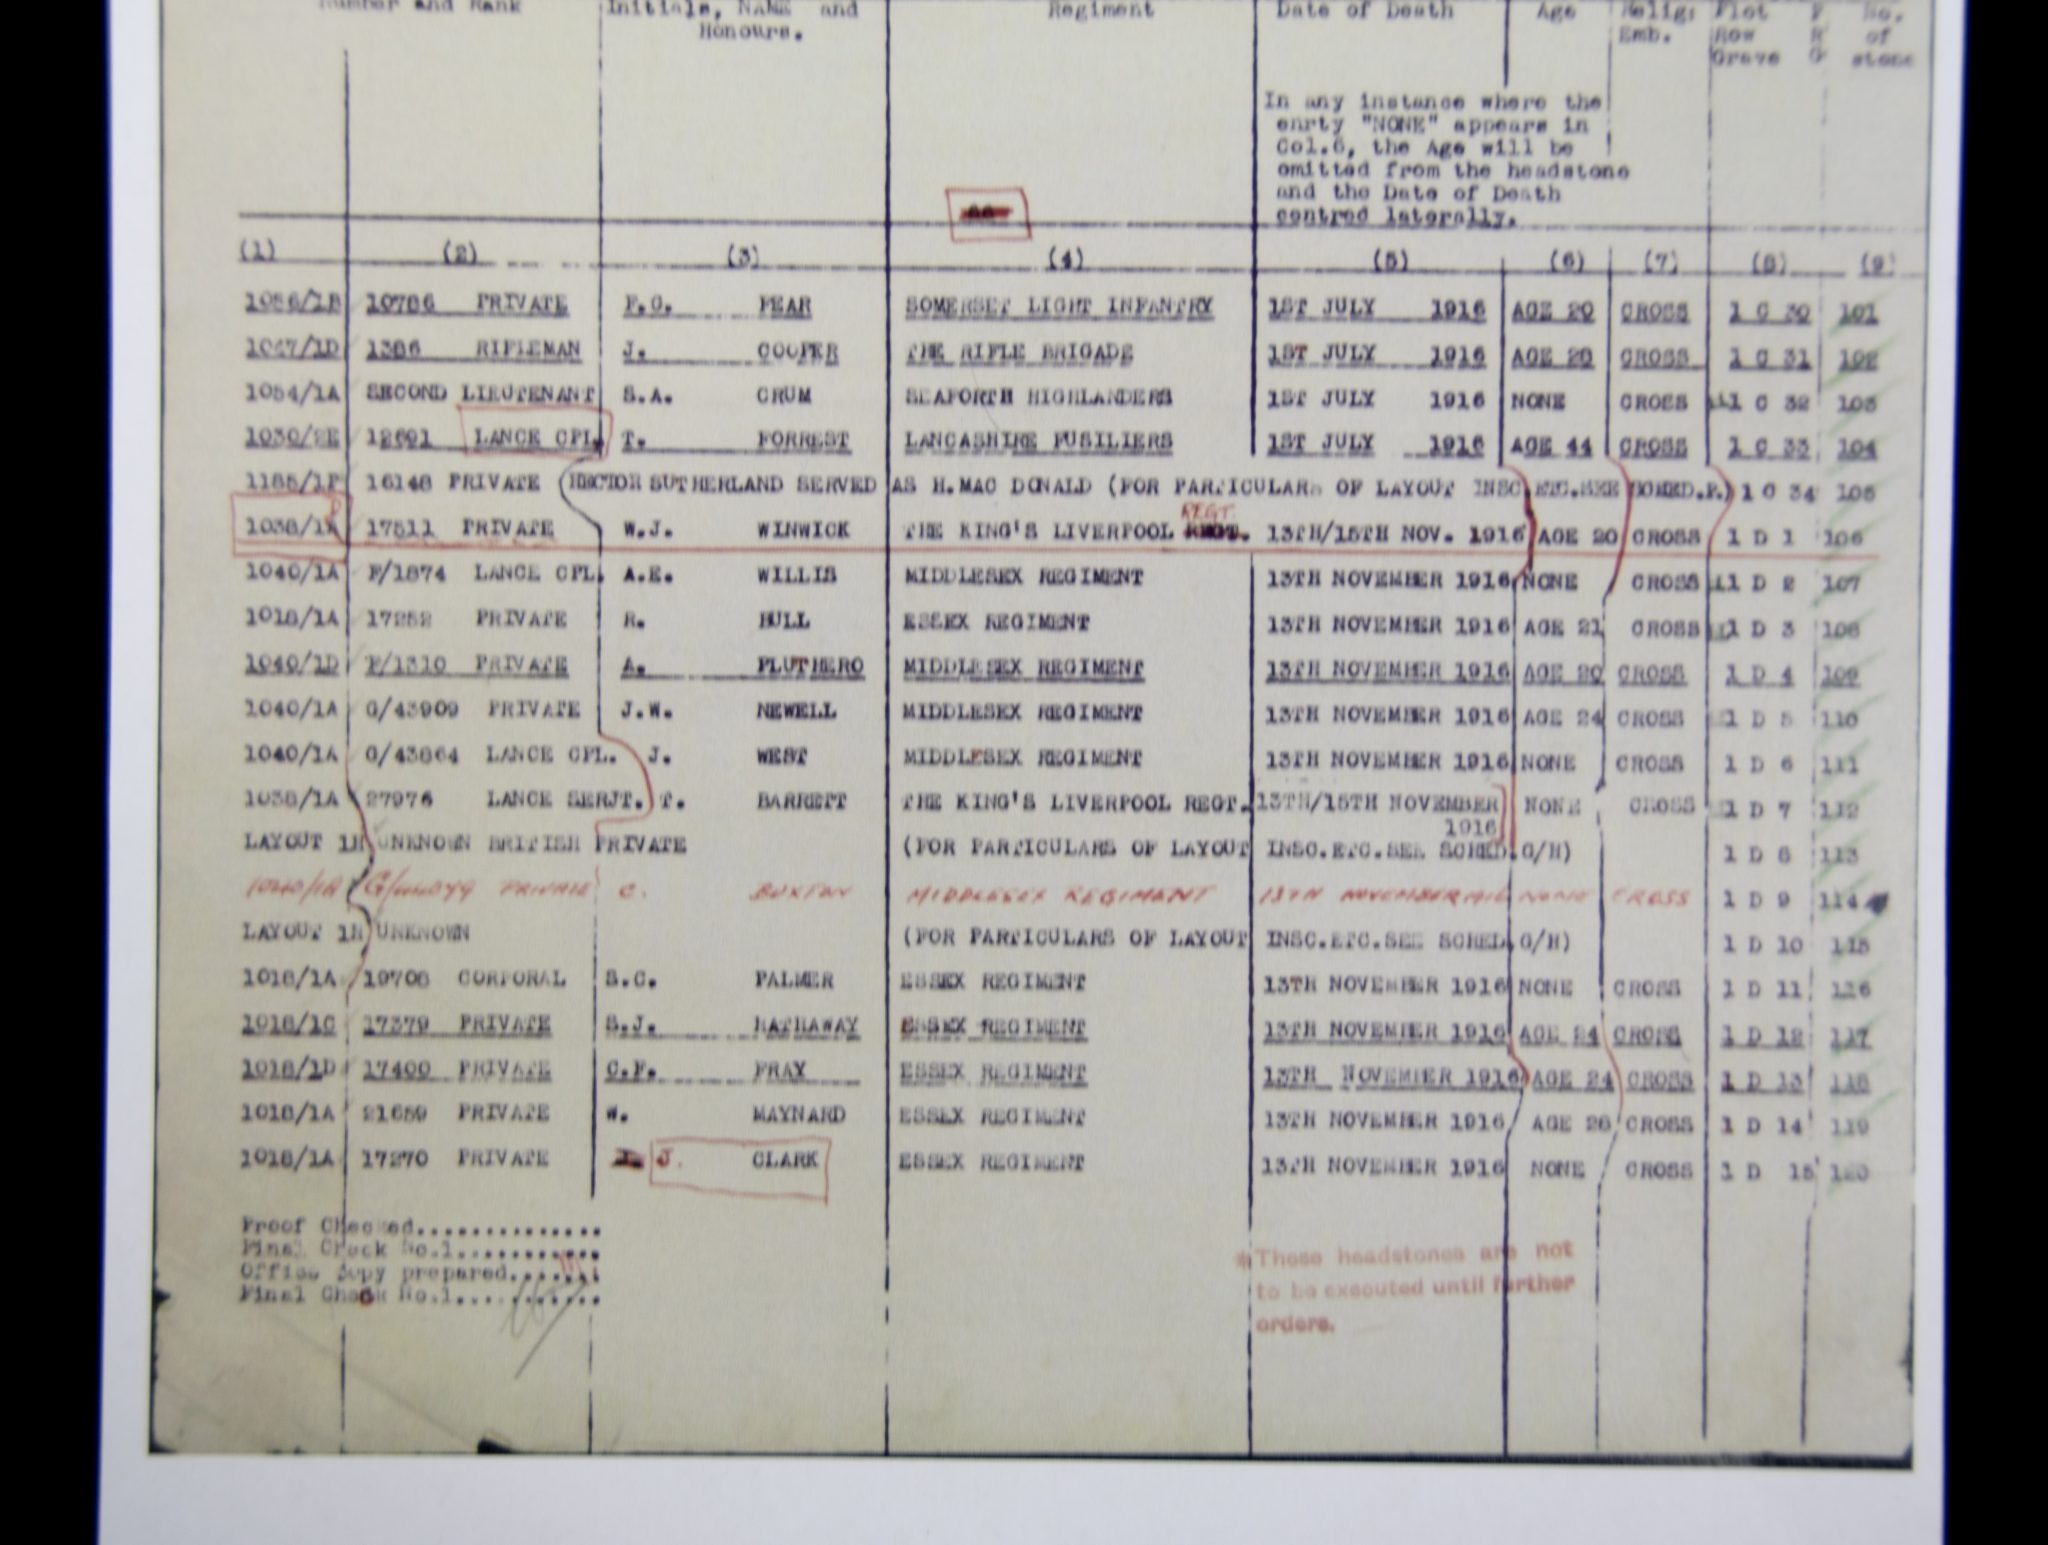 Number and Rank Initials, NAME and Regiment Date of Death Age Relig: Plot No.
Honours. Emb. Row R of
Grave G stone
In any instance where the
enrty "NONE" appears in
Col.6, the Age will be
omitted from the headstone
and the Date of Death
centred laterally.
(1) (2) (3) (4) (5) (6) (7) (8) (9)
1056/1B 10786 PRIVATE F.G. FEAR SOMERSET LIGHT INFANTRY 1ST JULY 1916 AGE 20 CROSS 1 C 30 101
1047/1D 1386 RIFLEMAN J. COOPER THE RIFLE BRIGADE 1ST JULY 1916 AGE 20 CROSS 1 C 31 102
1054/1A SECOND LIEUTENANT S.A. CRUM SEAFORTH HIGHLANDERS 1ST JULY 1916 NONE CROSS 1 C 32 103
1030/2E 12601 LANCE CPL. T. FORREST LANCASHIRE FUSILIERS 1ST JULY 1916 AGE 44 CROSS 1 C 33 104
1185/1F 16148 PRIVATE HECTOR SUTHERLAND SERVED AS H.MAC DONALD (FOR PARTICULARS OF LAYOUT INSC.ETC.SEE SCHED.F.) 1 C 34 105
REGT.
1038/1A 17511 PRIVATE W.J. WINWICK THE KING'S LIVERPOOL REGT. 13TH/15TH NOV. 1916 AGE 20 CROSS 1 D 1 106
1040/1A F/1874 LANCE CPL. A.E. WILLIS MIDDLESEX REGIMENT 13TH NOVEMBER 1916 NONE CROSS 1 D 2 107
1018/1A 17252 PRIVATE R. HULL ESSEX REGIMENT 13TH NOVEMBER 1916 AGE 21 CROSS 1 D 3 108
1040/1D F/1310 PRIVATE A. FLUTHERO MIDDLESEX REGIMENT 13TH NOVEMBER 1916 AGE 20 CROSS 1 D 4 109
1040/1A G/43909 PRIVATE J.W. NEWELL MIDDLESEX REGIMENT 13TH NOVEMBER 1916 AGE 24 CROSS 1 D 5 110
1040/1A G/43864 LANCE CPL. J. WEST MIDDLESEX REGIMENT 13TH NOVEMBER 1916 NONE CROSS 1 D 6 111
1038/1A 27976 LANCE SERJT. T. BARRETT THE KING'S LIVERPOOL REGT. 13TH/15TH NOVEMBER NONE CROSS 1 D 7 112
1916
LAYOUT 1H UNKNOWN BRITISH PRIVATE (FOR PARTICULARS OF LAYOUT INSC.ETC.SEE SCHED.G/H) 1 D 8 113
1040/1A PRIVATE C. BUXTON MIDDLESEX REGIMENT 13TH NOVEMBER 1916 NONE CROSS 1 D 9 114
LAYOUT 1H UNKNOWN (FOR PARTICULARS OF LAYOUT INSC.ETC.SEE SCHED.G/H) 1 D 10 115
1018/1A 19708 CORPORAL S.C. PALMER ESSEX REGIMENT 13TH NOVEMBER 1916 NONE CROSS 1 D 11 116
1018/1C 17379 PRIVATE S.J. HATHAWAY ESSEX REGIMENT 13TH NOVEMBER 1916 AGE 24 CROSS 1 D 12 117
1018/1D 17400 PRIVATE C.F. PRAY ESSEX REGIMENT 13TH NOVEMBER 1916 AGE 24 CROSS 1 D 13 118
1018/1A 21659 PRIVATE W. MAYNARD ESSEX REGIMENT 13TH NOVEMBER 1916 AGE 26 CROSS 1 D 14 119
1018/1A 17270 PRIVATE J. CLARK ESSEX REGIMENT 13TH NOVEMBER 1916 NONE CROSS 1 D 15 120
Proof Checked..............
Final Check No.1...........
Office Copy prepared.......
Final Check No.1...........
*These headstones are not
to be executed until further
orders.